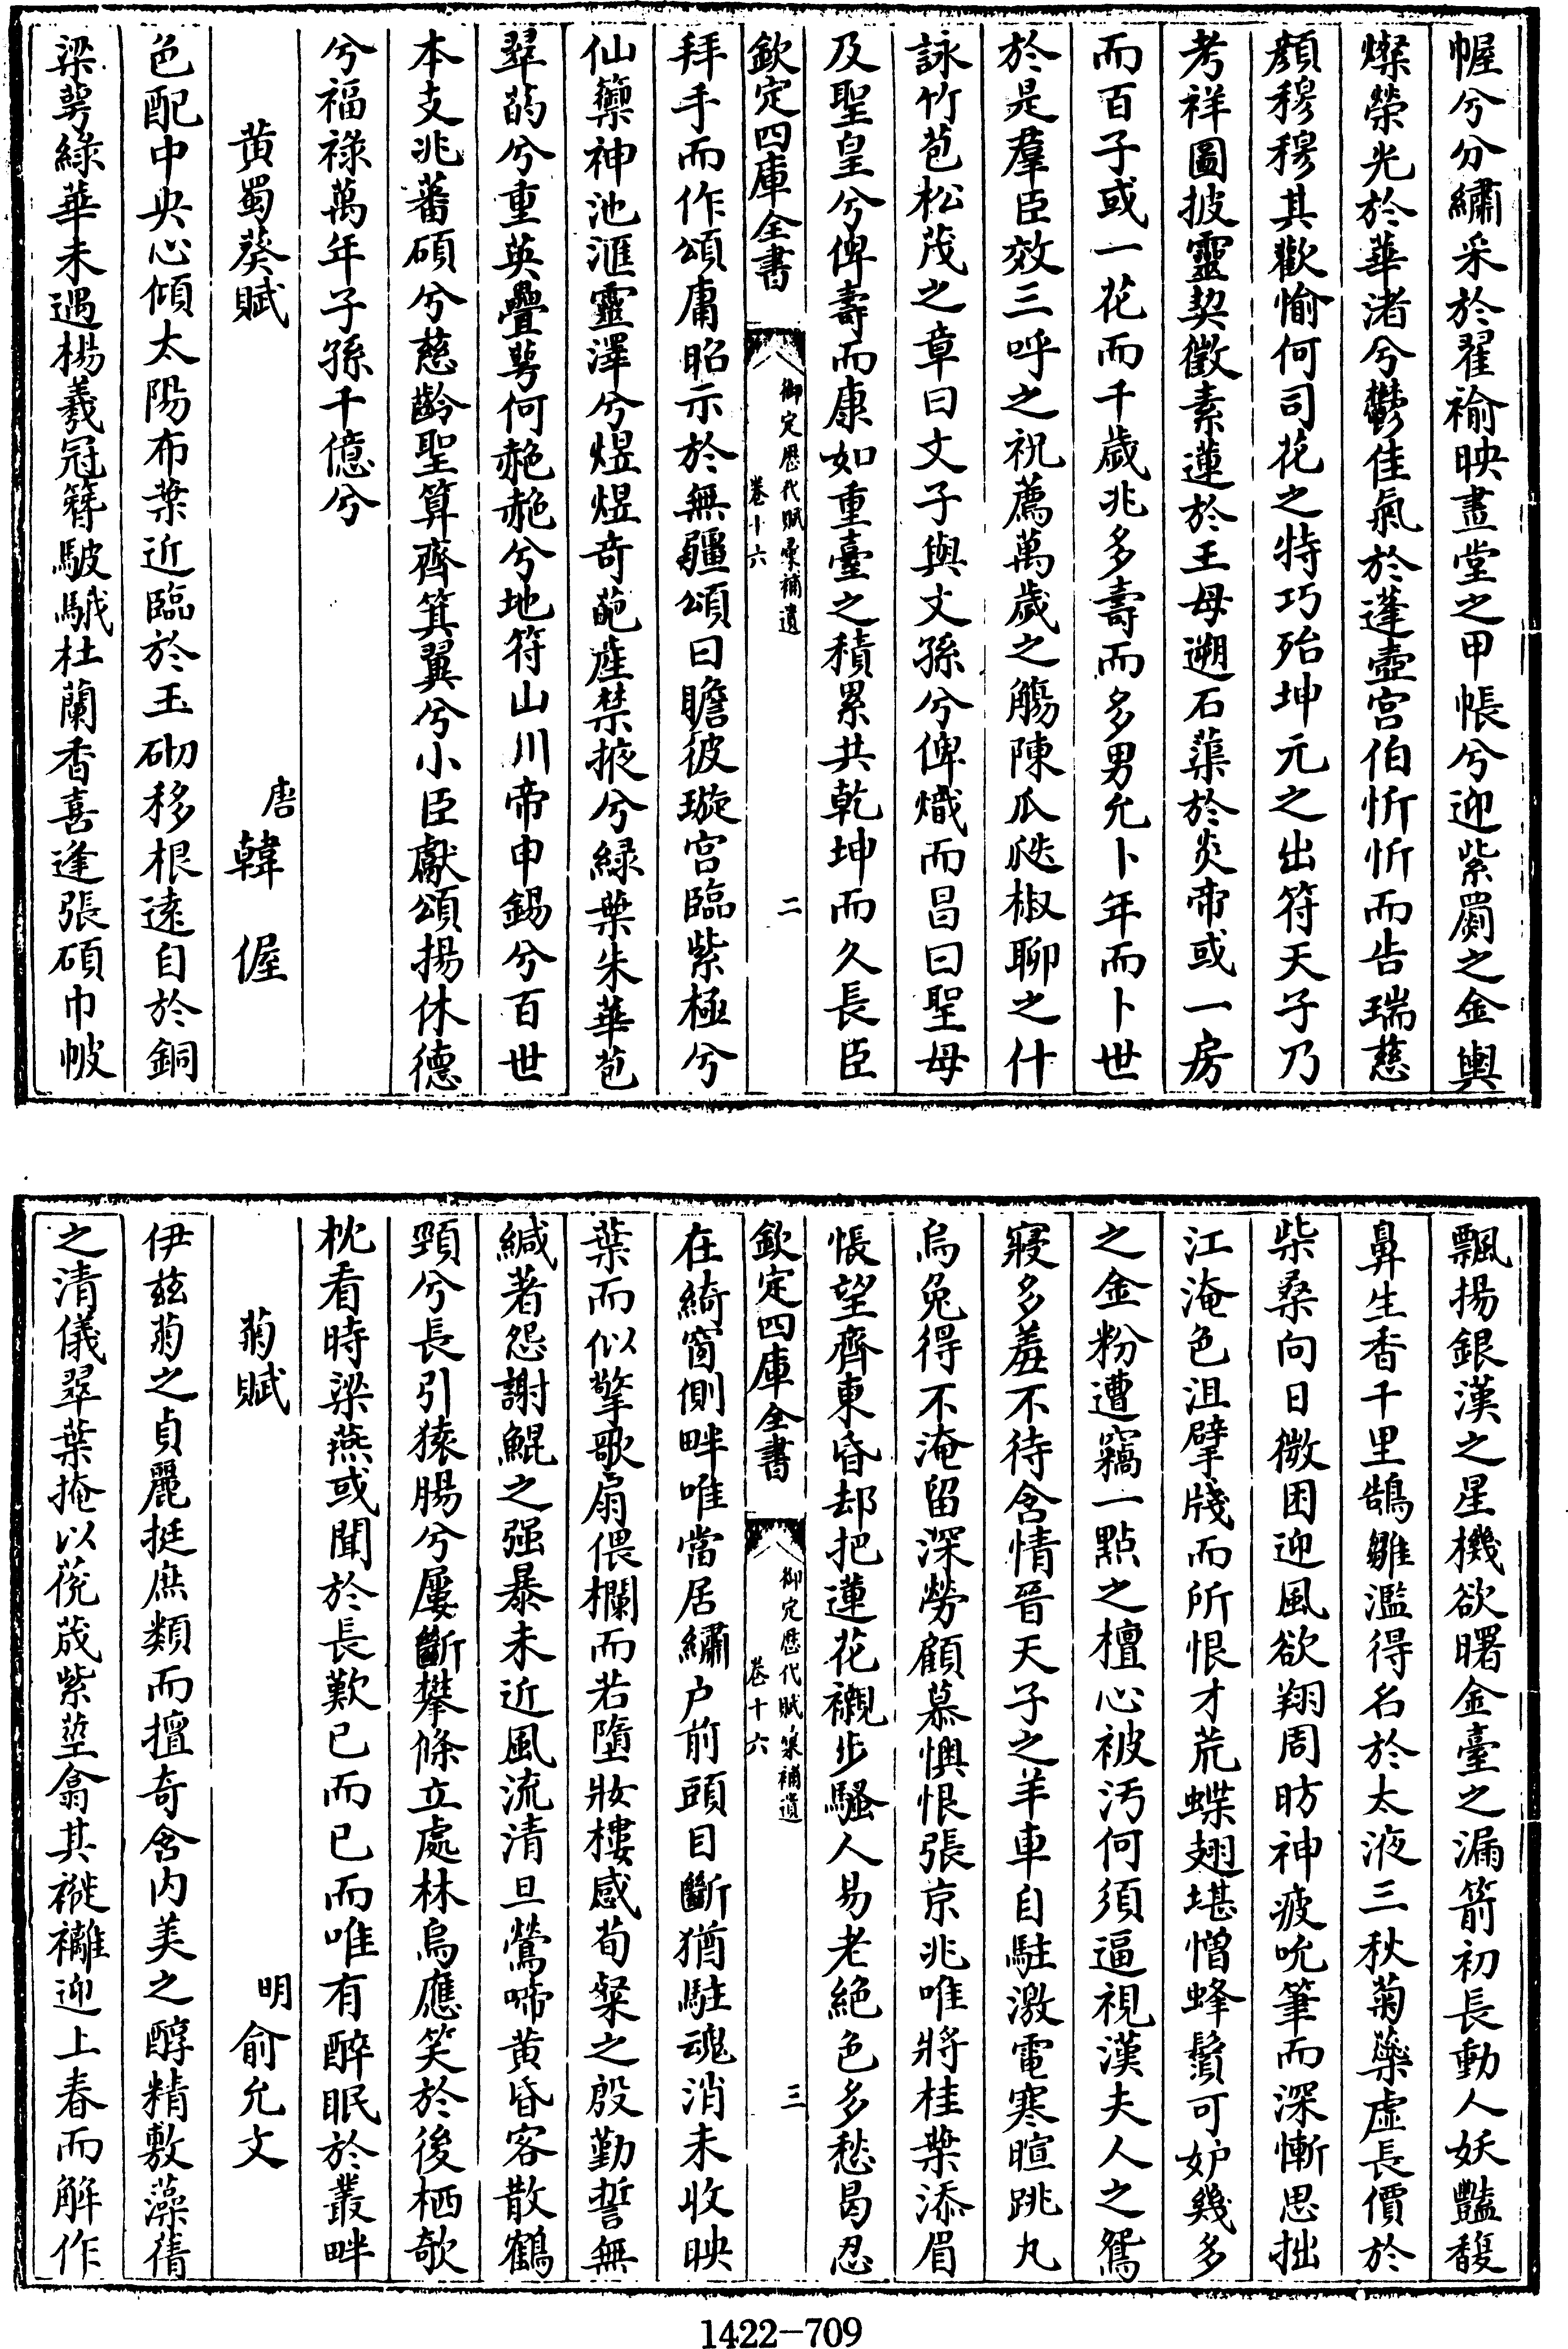 幄兮分繡采於翟褕映畫堂之甲帳兮迎紫罽之金輿
燦榮光於華渚兮鬱佳氣於蓬壺宫伯忻忻而告瑞慈
顔穆穆其歡愉何司花之特巧殆坤元之出符天子乃
考祥圖披靈契徵素蓮於王母遡石蕖於炎帝或一房
而百子或一花而千歲兆多壽而多男允卜年而卜世
於是羣臣效三呼之祝薦萬歲之觴陳瓜瓞椒聊之什
詠竹苞松茂之章曰文子與文孫兮俾熾而昌曰聖母
及聖皇兮俾壽而康如重臺之積累共乾坤而久長臣
欽定四庫全書 御定歷代賦彙補遺 卷十六 二
拜手而作頌庸昭示於無疆頌曰瞻彼璇宫臨紫極兮
仙籞神池滙靈澤兮煜煜奇葩産禁掖兮緑葉朱華苞
翠菂兮重英疊萼何赩赩兮地符山川帝申錫兮百世
本支兆蕃碩兮慈齡聖算齊箕翼兮小臣獻頌揚休德
兮福祿萬年子孫千億兮
黄蜀葵賦 唐 韓偓
色配中央心傾太陽布葉近臨於玉砌移根遠自於銅
梁萼緑華未遇楊羲冠簪䮀䮘杜蘭香喜逢張碩巾帔
飄揚銀漢之星機欲曙金臺之漏箭初長動人妖豔馥
鼻生香千里鵠雛濫得名於太液三秋菊蘂虚長價於
柴桑向日微困迎風欲翔周昉神疲吮筆而深慚思拙
江淹色沮擘牋而所恨才荒蝶翅堪憎蜂鬚可妒幾多
之金粉遭竊一點之檀心被汚何須逼視漢夫人之鴛
寢多羞不待含情晉天子之羊車自駐激電寒暄跳丸
烏兔得不淹留深勞顧慕懊恨張京兆唯將桂葉添眉
悵望齊東昏却把蓮花襯步騷人易老絶色多愁曷忍
欽定四庫全書 御定歷代賦彙補遺 卷十六 三
在綺窗側畔唯當居繡户前頭目斷猶駐魂消未收映
葉而似擎歌扇偎欄而若墮妝樓感荀粲之殷勤誓無
緘著怨謝鯤之强暴未近風流清旦鶯啼黄昏客散鶴
頸兮長引猿腸兮屢斷攀條立處林烏應笑於後栖欹
枕看時梁燕或聞於長歎已而已而唯有醉眠於叢畔
菊賦 明 俞允文
伊兹菊之貞麗挺庶類而擅奇含内美之醇精敷藻蒨
之清儀翠葉掩以莈葴紫莖翕其褷褵迎上春而解作
1422-709